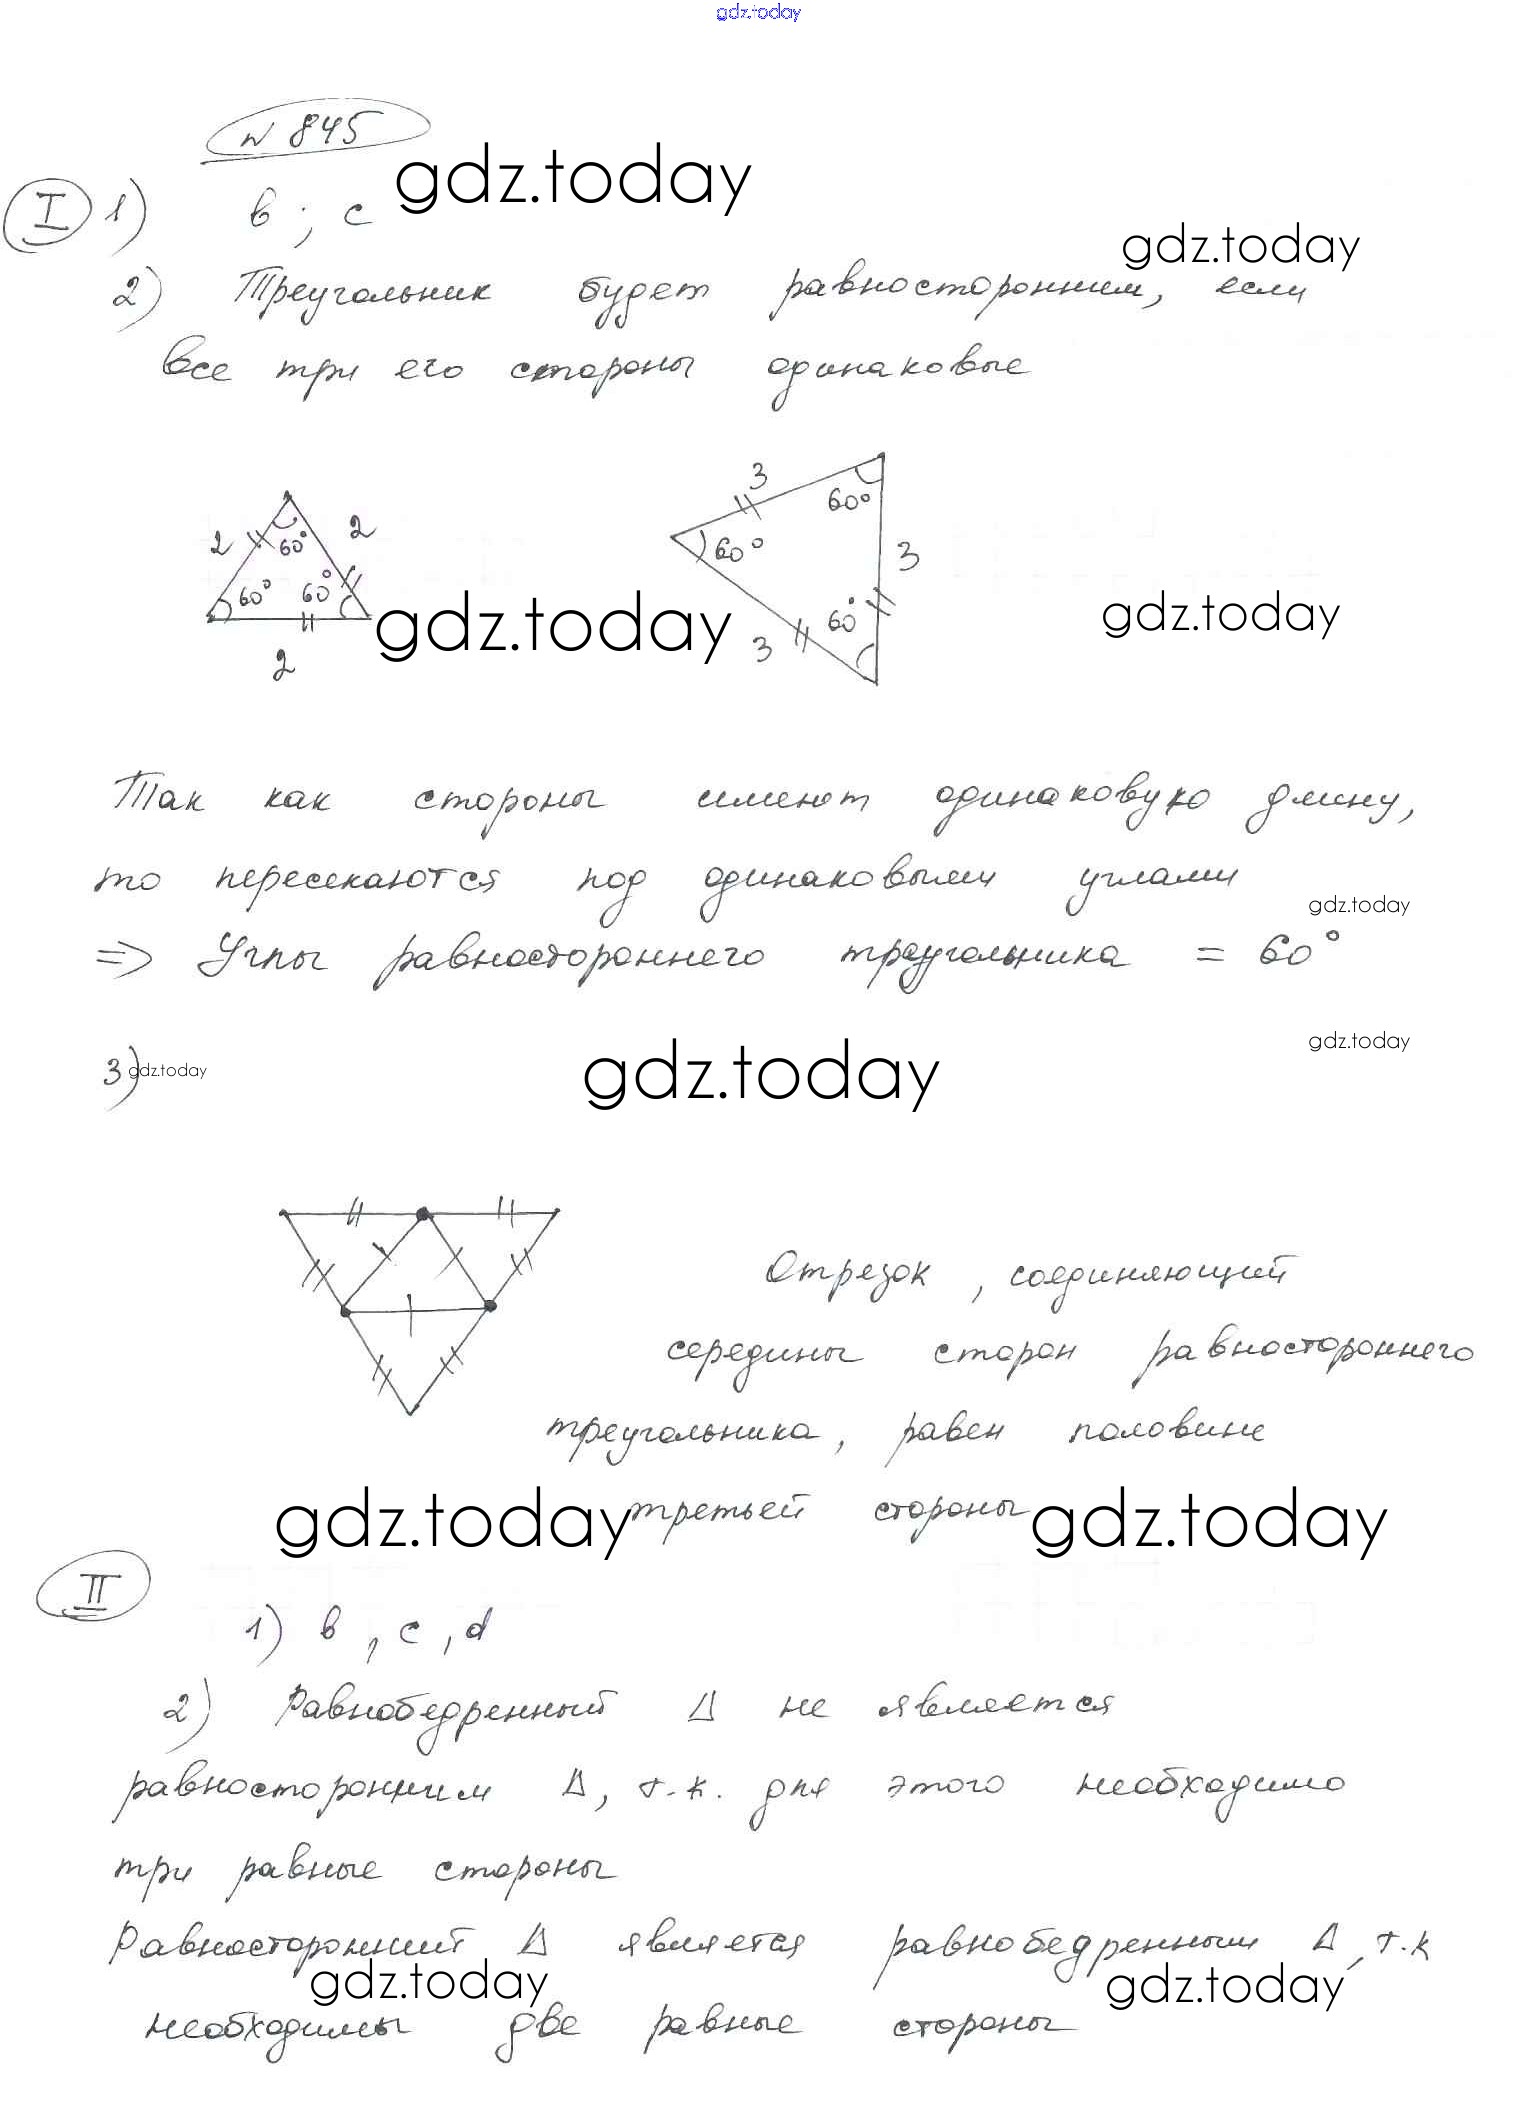 gdz.today
N 845
gdz.today
I 1) в ; с
gdz.today
2) Треугольник будет равносторонним, если
все три его стороны одинаковые
3
60°
2 60° 2
60° 3
60° 60°
60°
gdz.today
gdz.today
3
2
Так как стороны имеют одинаковую длину,
то пересекаются под одинаковыми углами
gdz.today
=> Углы равностороннего треугольника = 60°
gdz.today
3) gdz.today
gdz.today
Отрезок , соединяющий
середины сторон равностороннего
треугольника, равен половине
gdz.today третьей стороны gdz.today
II
1) в , с , d
2) Равнобедренный Δ не является
равносторонним Δ, т.к. для этого необходимо
три равные стороны
Равносторонний Δ является равнобедренным Δ, т.к
gdz.today gdz.today
необходимы две равные стороны